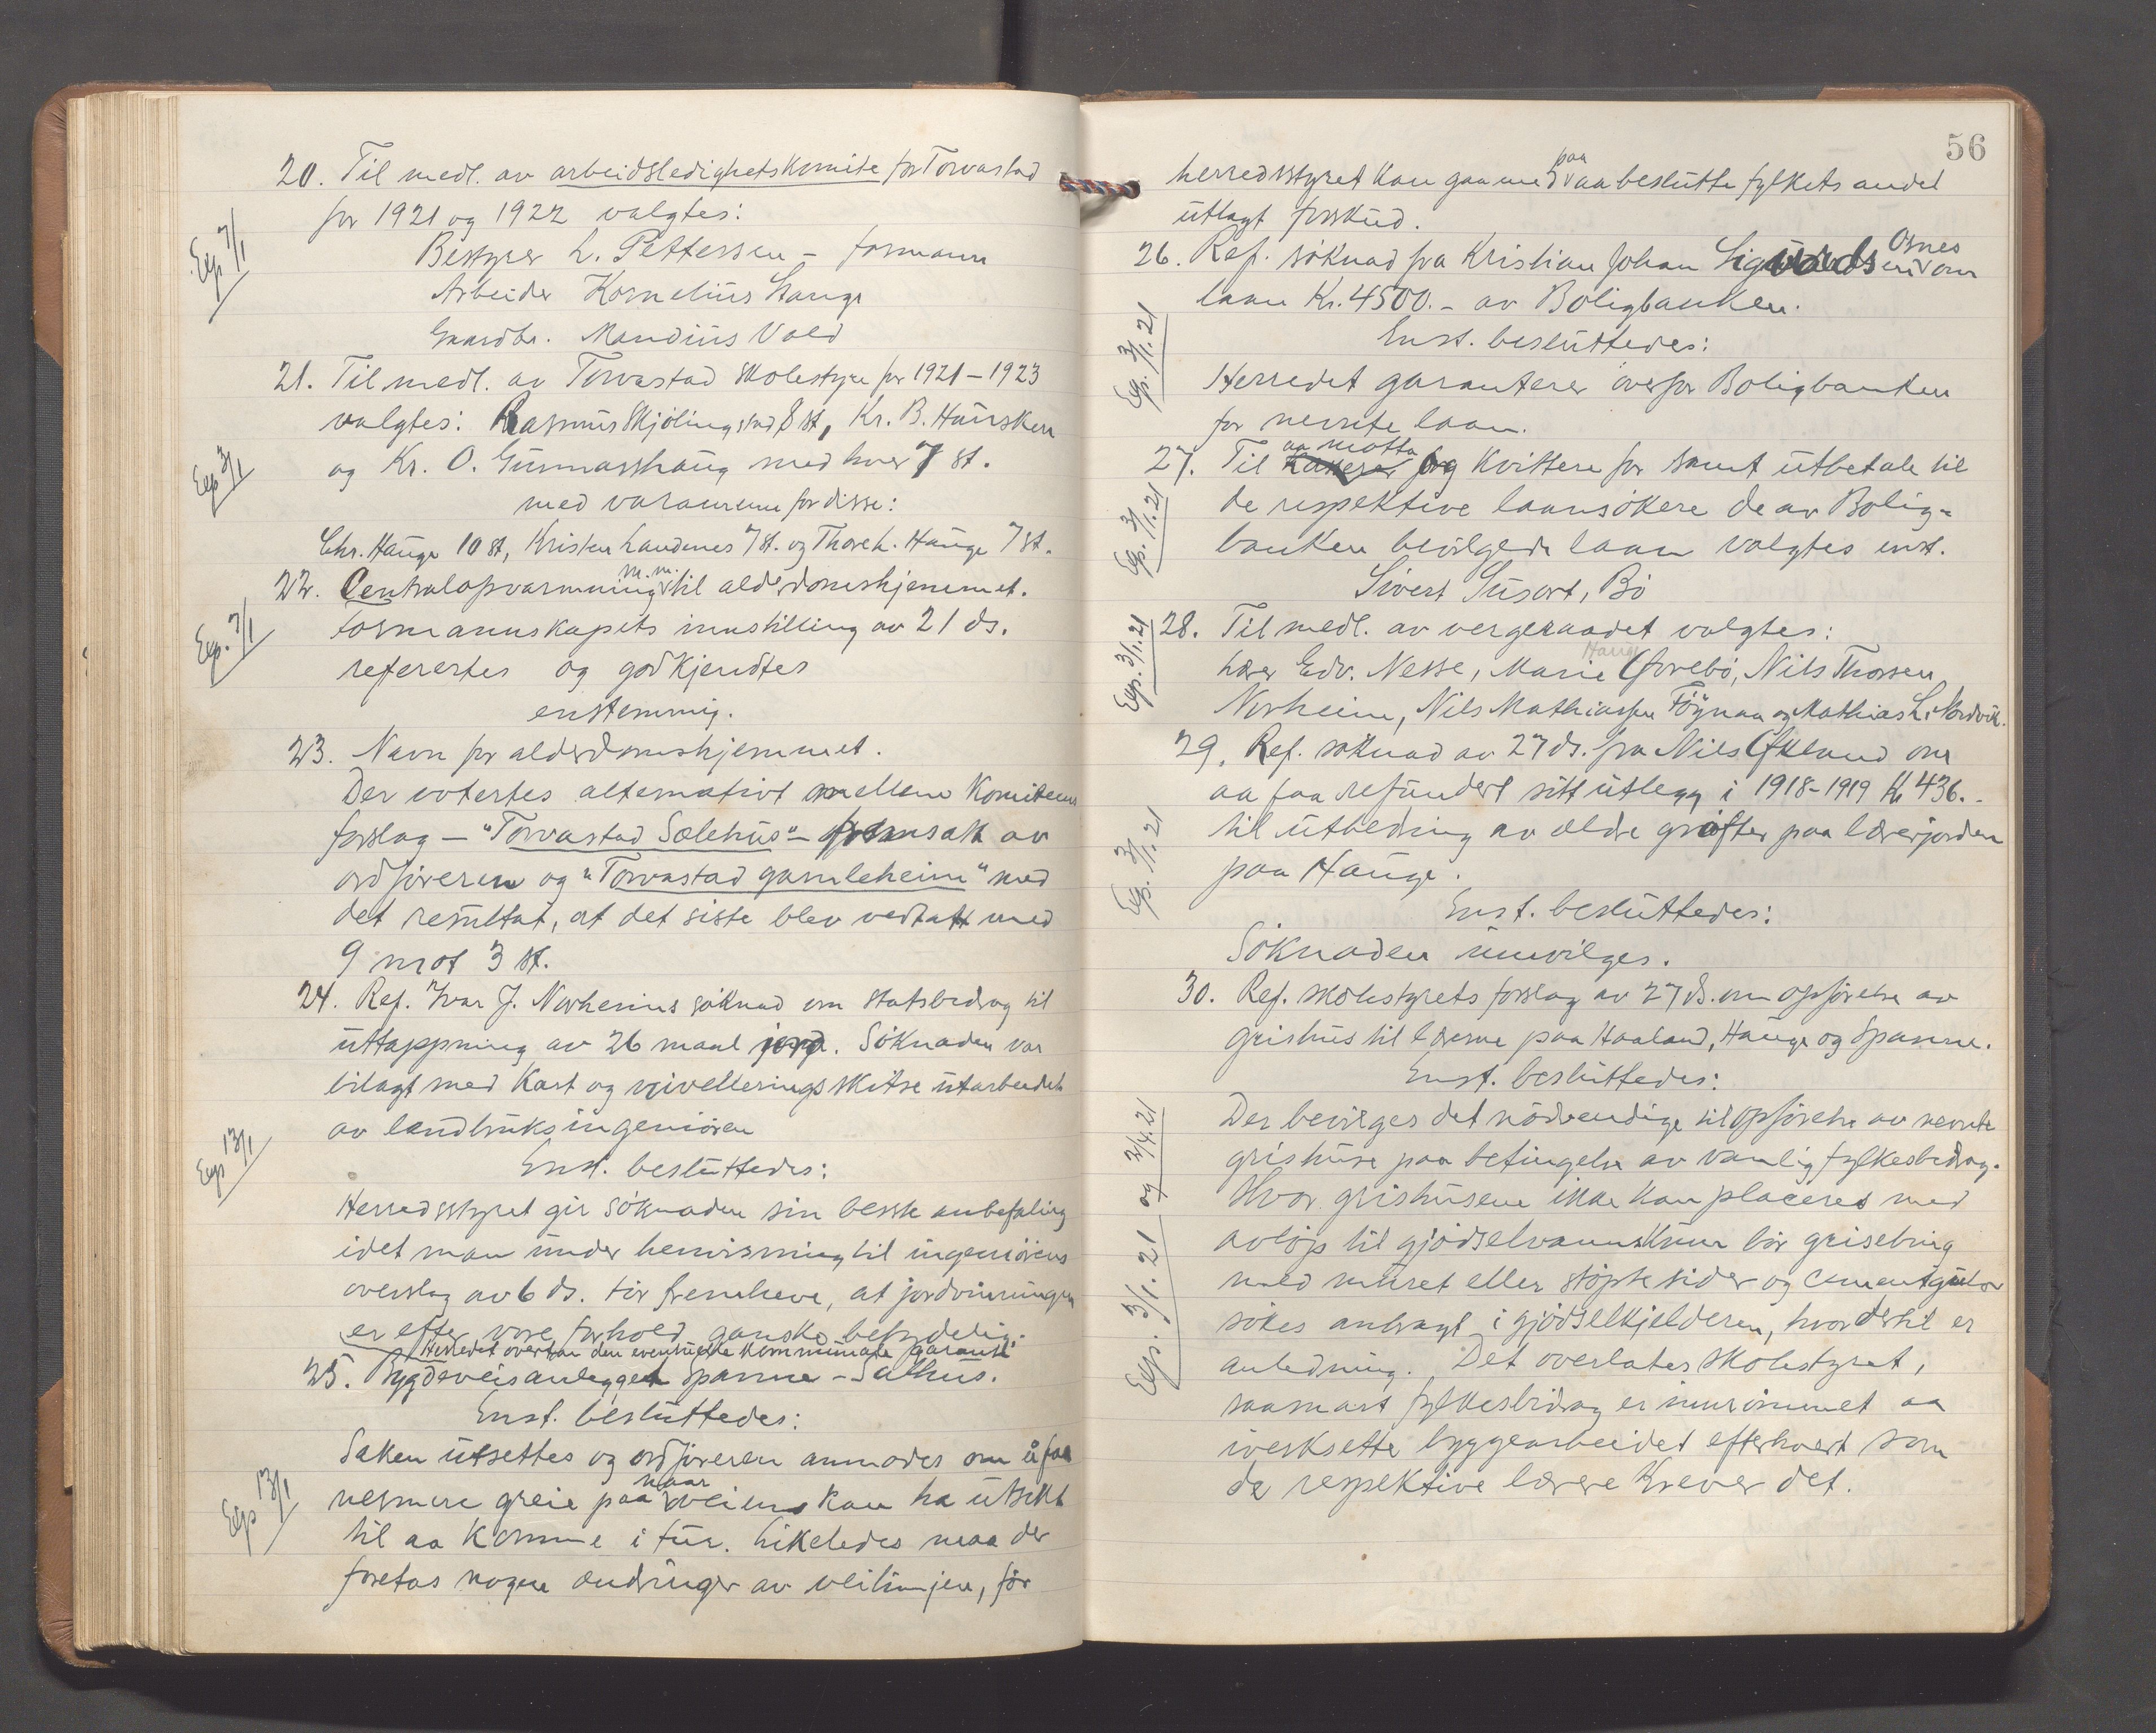 20. Til medl. av arbeidsledighetskomite for Torvastad
for 1921 og 1922 valgtes:
Exp 7/1
Bestyrer L. Pettersen - formann
Arbeider Kornelius Stange
Gaardbr. Mandius Vold
21. Til medl. av Torvastad skolestyre for 1921-1923
valgtes: Rasmus Skjölingstad 8 st, Kr. B. Hausken
Exp 3/1
og Kr. O. Gunnarshaug med hver 7 st.
med varamenn for disse:
Chr. Hauge 10 st, Kristen Landenes 7 st. og Thore L. Hauge 7 st.
m.m.
22. Centralopvarmning til alderdomshjemmet.
Exp. 7/1
Formannskapets innstilling av 21 ds.
refertes og godkjendtes
enstemmig.
23. Navn for alderdomshjemmet.
Der votertes alternativt mellem komiteens
forslag - "Torvastad Sælehus" - fremsatt av
ordföreren og "Torvastad gamleheim" med
det resultat, at det siste blev vedtatt med
9 mot 3 st.
24. Ref. Ivar J. Norheims söknad om statsbidrag til
uttappning av 26 maal jord. Söknaden var
bilagt med kart og nivelleringsskitse utarbeidet
av landbruksingeniören
Exp 13/1
Enst. besluttedes:
Herredsstyret gir söknaden sin beste anbefaling
idet man under henvisning til ingeniörens
overslag av 6 ds. tör fremheve, at jordvinningen
er efter vore forhold ganske betydelig.
Herredet overtar den eventuelle kommunale garanti
25. Bygdeveisanlegget Spanne - Salhus.
Enst. besluttedes:
Saken utsettes og ordföreren anmodes om å faa
Exp 13/1
naar
nermere greie paa veiens kan ha utsikt
til aa komme i tur. Likeledes maa der
foretas nogen endringer av veilinjen, för
56
paa
herredsstyret kan gaa med aa beslutte fylkets andel
utlagt forskud.
Osnes
26. Ref. söknad fra Kristian Johan Sigvardsen om
laan Kr. 4500.- av Boligbanken.
Exp. 3/1.21
Enst. besluttedes:
Herredet garanterer overfor Boligbanken
for nevnte laan.
aa motta
27. Til og kvittere for samt utbetale til
Exp. 3/1.21
de respektive laansökere de av Bolig-
banken bevilgede laan valgtes enst.
Sivert Susort, Bö
Exp. 3/1.21
28. Til medl. av vergeraadet valgtes:
Hauge
lærer Edv. Nesse, Marie Övrebö, Nils Thorsen
Norheim, Nils Mathiassen Föynaa og Mathias L. Nordvik.
29. Ref. söknad av 27 ds. fra Nils Ökland om
aa faa refundert sitt utlegg i 1918-1919 Kr 436.-
Exp. 3/1.21
til utbedring av eldre gröfter paa lærerjorden
paa Hauge.
Enst. besluttedes:
Söknaden innvilges.
30. Ref. skolestyrets forslag av 27 ds. om opförelse av
grishus til lærerne paa Haaland, Hauge og Spanne.
Enst. besluttedes:
Exp. 3/1.21 og 2/4.21
Der bevilges det nödvendige til opförelse av nevnte
grishuse paa betingelse av vanlig fylkesbidrag.
Hvor grishusene ikke kan placeres med
avlöp til gjödselvannskum bör grisebing
med muret eller stöpte sider og cementgulv
sökes anbragt i gjödselkjelderen, hvor dertil er
anledning. Det overlates skolestyret,
saasnart fylkesbidrag er innrömmet aa
iverksette byggearbeidet efterhvert som
de respektive lærere krever det.